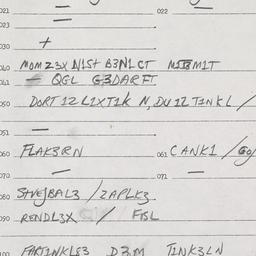 021 — 022 —
023 —
030 +
040 MOM Z3X N1ST B3N1CT M1BM1T
041 — QGL G3DARFT
050 DORT 12 L1XT1K N, DU 12 T1NKL /
051 —
060 FLAK3RN 061 CANK1 /
070 — 071 —
080 STAVEJBAL3 / ZAPLK3
090 RENDL3X / FISL
100 FARTINKLE3 D3M TINK3LN